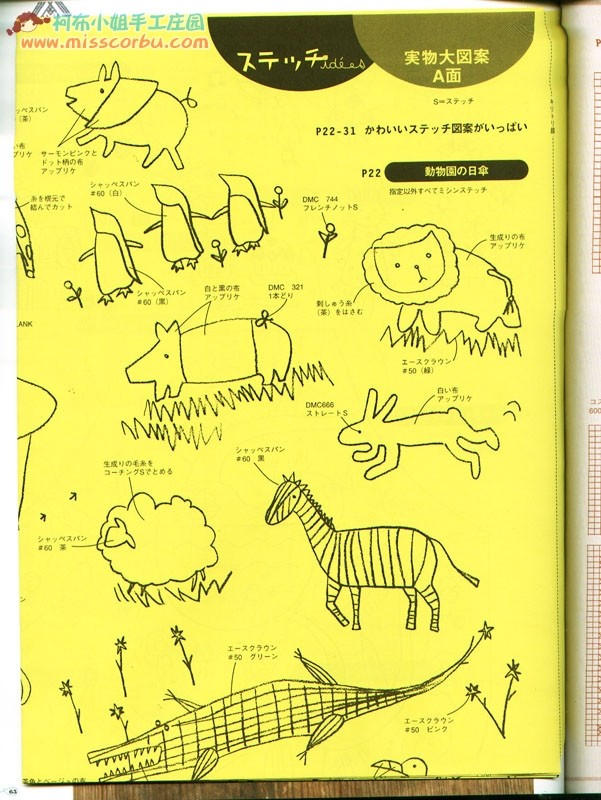 柯布小姐手工庄园
www.misscorbu.com
ステッチidées
実物大図案
A面
S=ステッチ
キリトリ線
P22-31 かわいいステッチ図案がいっぱい
P22 動物園の日傘
指定以外すべてミシンステッチ
サーモンピンクと
ドット柄の布
アップリケ
糸を根元で
結んでカット
シャッペスパン
#60(白)
DMC 744
フレンチノットS
生成りの布
アップリケ
シャッペスパン
#60(黒)
白と黒の布
アップリケ
DMC 321
1本どり
刺しゅう糸
(茶)をはさむ
エースクラウン
#50(緑)
LANK
DMC666
ストレートS
白い布
アップリケ
生成りの毛糸を
コーチングSでとめる
シャッペスパン
#60 黒
シャッペスパン
#60 茶
エースクラウン
#50 グリーン
エースクラウン
#50 ピンク
茶色とベージュの布
65